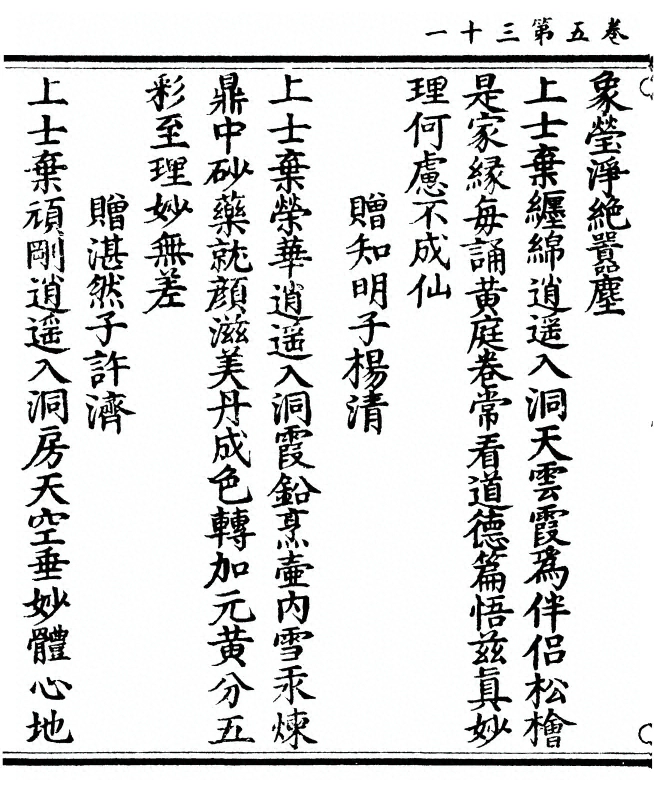 卷五第三十一
象瑩淨絶囂塵
上士棄纏綿逍遥入洞天雲霞爲伴侣松檜
是家緣每誦黄庭卷常看道德篇悟兹真妙
理何慮不成仙
贈知明子楊清
上士棄榮華逍遥入洞霞鉛烹壷内雪汞煉
鼎中砂藥就顔滋美丹成色轉加元黄分五
彩至理妙無差
贈湛然子許濟
上士棄頑剛逍遥入洞房天空垂妙體心地